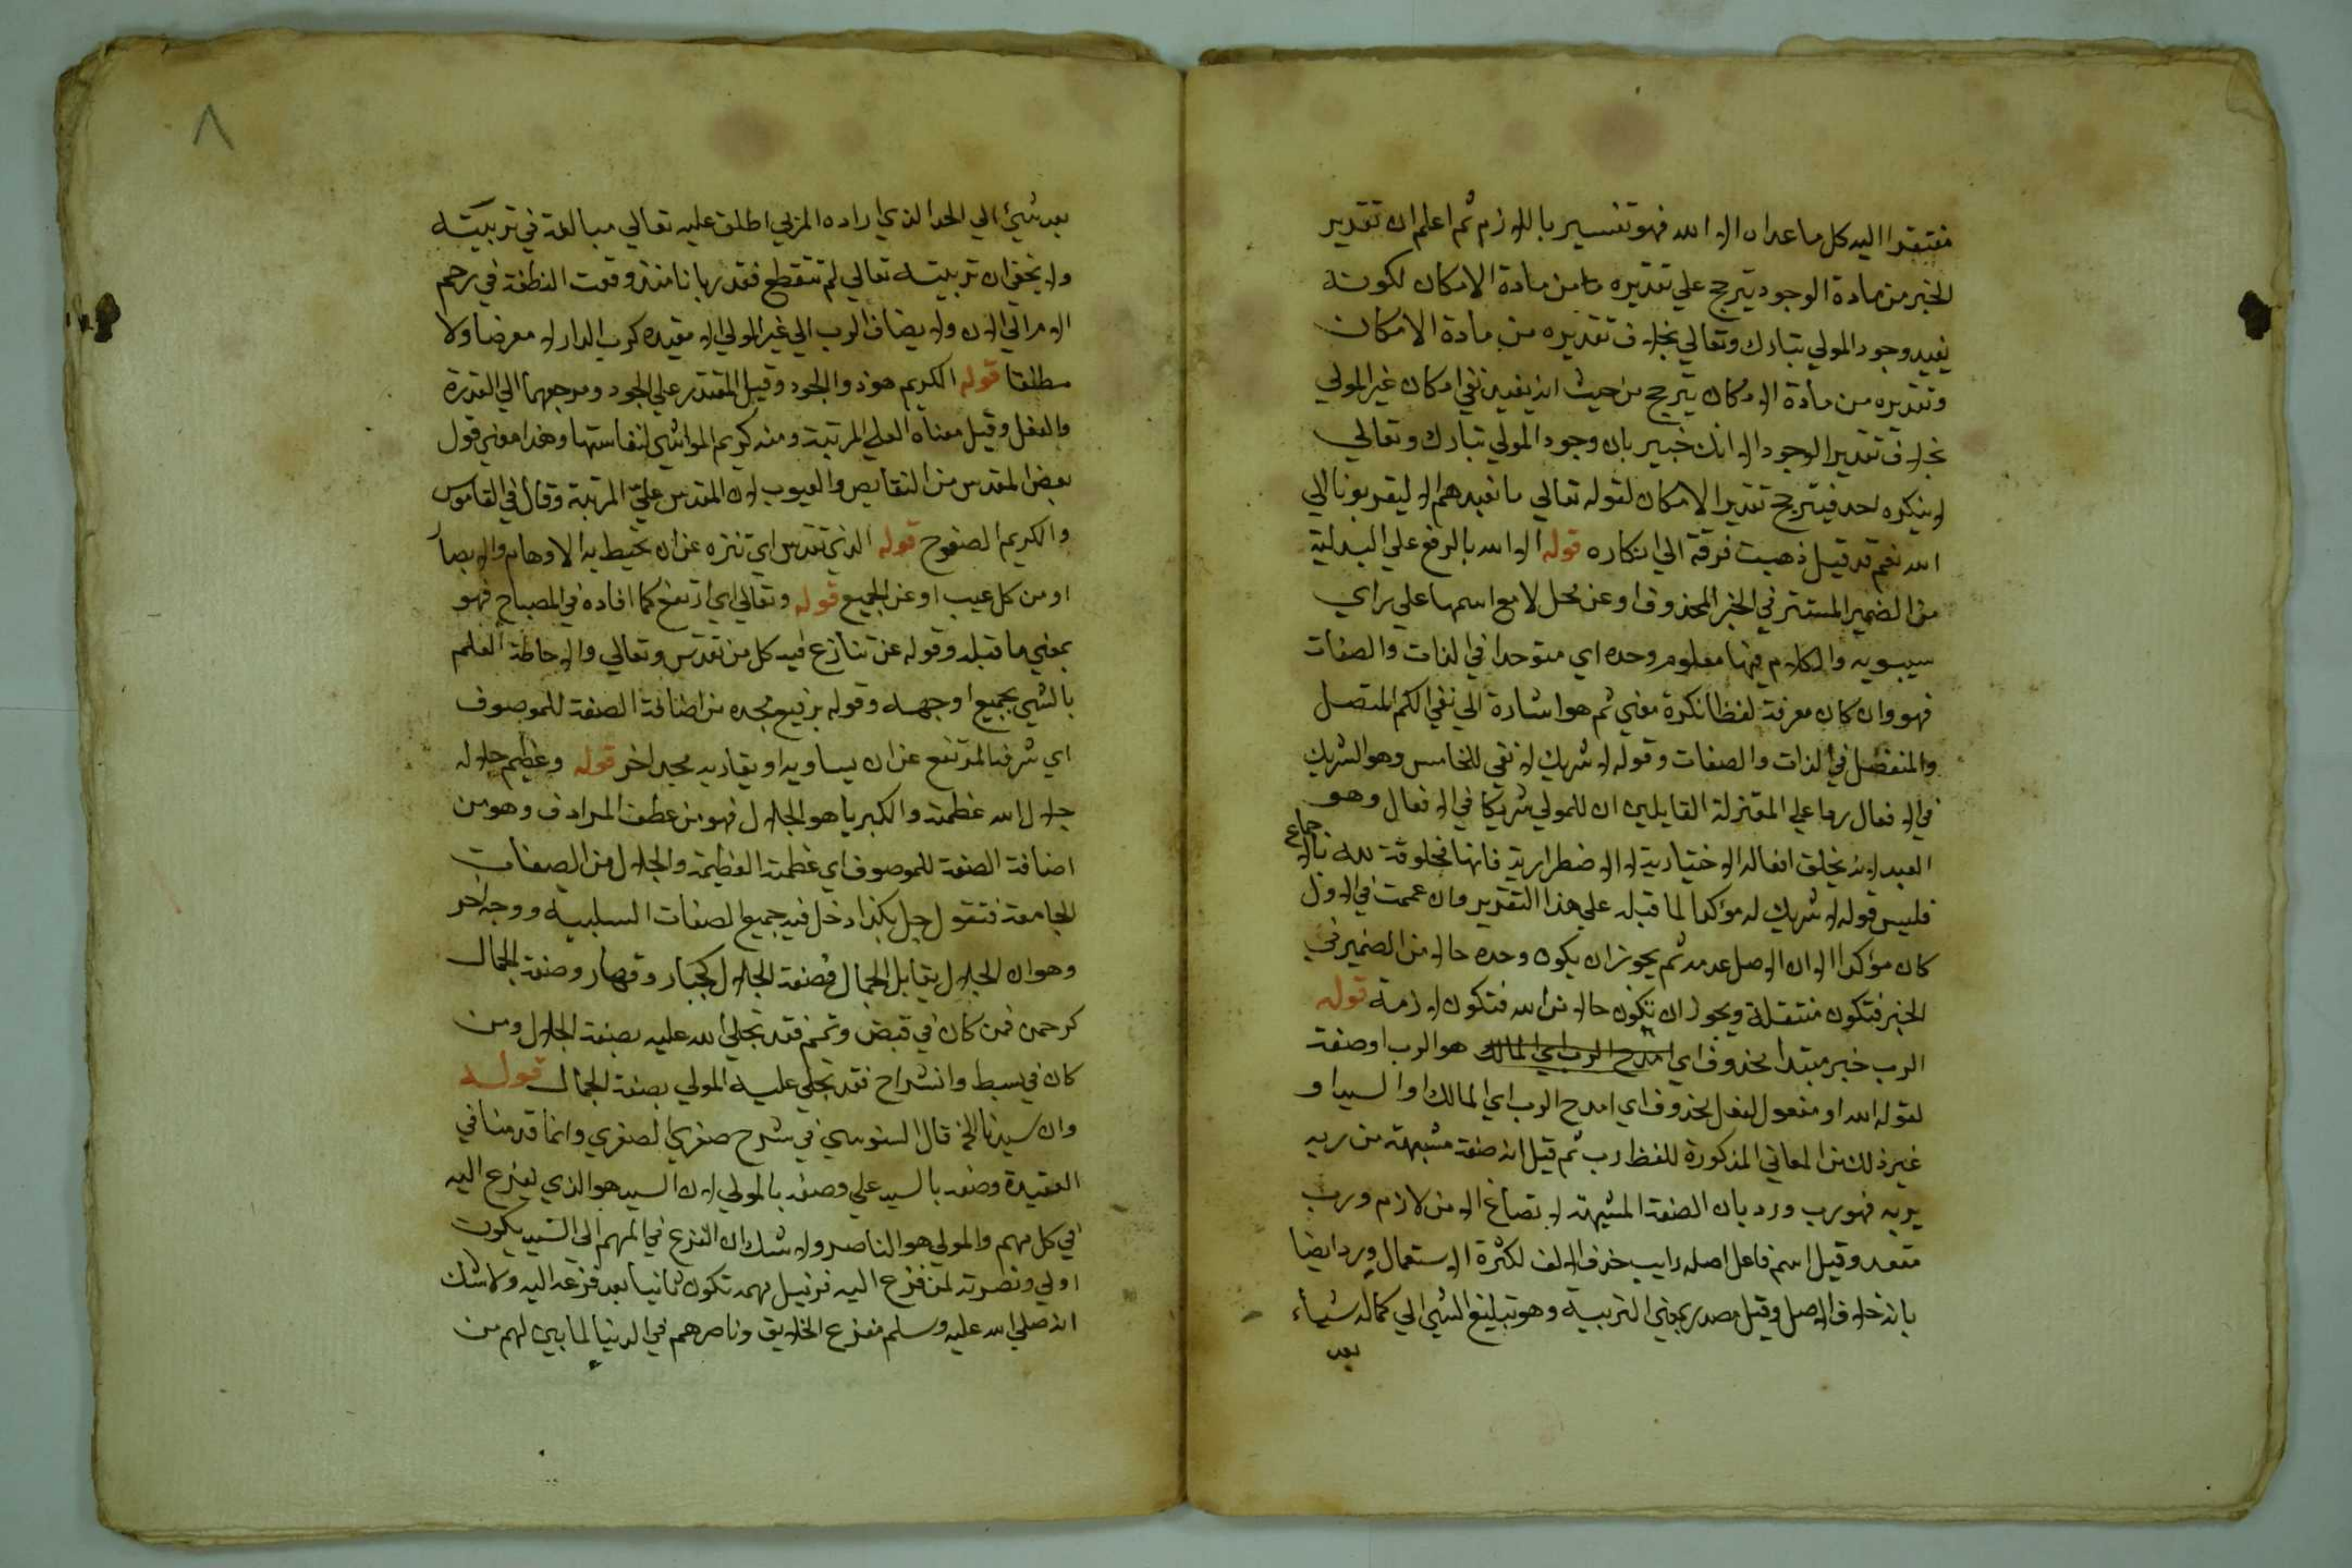 مفتقرا اليه كل ما عداه الا الله فهو تفسير باللازم ثم اعلم ان تقدير
الخبر من مادة الوجود يترجح علي تقديره من مادة الامكان لكونه
يفيد وجود المولي تبارك وتعالي بخلاف تقديره من مادة الامكان
وتقديره من مادة الامكان يترجح من حيث انه يفيد نفي امكان غير المولي
بخلاف تقدير الوجود الا انك خبير بان وجود المولي تبارك وتعالي
لا ينكره احد فيترجح تقدير الامكان لقوله تعالي ما نعبدهم الا ليقربونا الي
الله نعم قد قيل ذهبت فرقة الي انكاره قوله الا الله بالرفع علي البدلية
من الضمير المستتر في الخبر المحذوف او عن محل لا مع اسمها علي راي
سيبويه والكلام فيها معلوم وحده اي متوحدا في الذات والصفات
فهو وان كان معرفة لفظا نكرة معني ثم هو اشارة الي نفي الكم المتصل
والمنفصل في الذات والصفات وقوله لا شريك له نفي للخامس وهو الشريك
في الافعال ردا علي المعتزلة القايلين ان للمولي شريكا في الافعال وهو
العبد لانه يخلق افعاله الاختيارية لا الاضطرارية فانها مخلوقة لله بالاجماع
فليس قوله لا شريك له مؤكدا لما قبله علي هذا التقدير وان عممت في الاول
كان مؤكدا الا ان الاصل عدمه ثم يجوز ان يكون وحده حالا من الضمير في
الخبر فتكون منتقلة ويجوز ان تكون حالا من الله فتكون لازمة قوله
الرب خبر مبتدا محذوف اي امدح الرب اي المالك هو الرب او صفة
لقوله الله او مفعول لفعل محذوف اي امدح الرب اي المالك او السيد او
غير ذلك من المعاني المذكورة للفظ رب ثم قيل انه صفة مشبهة من ربه
يربه فهو رب ورد بان الصفة المشبهة لا تصاغ الا من لازم ورب
متعد وقيل اسم فاعل اصله رابب حذف الالف لكثرة الاستعمال ورد ايضا
بانه خلاف الاصل وقيل مصدر بمعني التربية وهو تبليغ الشي الي كماله شيأء
بعد
٨
بعد شيئ الي الحد الذي اراده المربي اطلق عليه تعالي مبالغة في تربيته
ولا يخفي ان تربيته تعالي لم تنقطع فقد ربانا منذ وقعت النطفة في رحم
الام الي الان ولا يضاف الرب الي غير المولي الا مقيده كرب الدار لا معرضا ولا
مطلقا قوله الكريم هو ذو الجود وقيل المقتدر علي الجود ومرجعهما الي القدرة
والفعل وقيل معناه العلي المرتبة ومنه كريم المواشي لنفاستها وهذا معني قول
بعض المقدس من النقايص والعيوب لان المقدس علي المرتبة وقال في القاموس
والكريم الصفوح قوله الذي تقدس اي تنزه عن ان تحيط به الاوهام والابصار
او من كل عيب او عن الجميع قوله وتعالي اي ارتفع كما افاده في المصباح فهو
بمعني ما قبله وقوله عن تنازع فيه كل من تقدس وتعالي والاحاطة العلم
بالشي بجميع اوجهه وقوله برفيع مجده من اضافة الصفة للموصوف
اي شرفه المرتفع عن ان يساويه او يقاربه مجد اخر قوله وعظيم جلاله
جلال الله عظمته والكبريا هو الجلال فهو من عطف المرادف وهو من
اضافة الصفة للموصوف اي عظمته العظيمة والجلال من الصفات
الجامعة فتقول جل بكذا دخل فيه جميع الصفات السلبية ووجه اخر
وهو ان الجلال يقابل الجمال فصفة الجلال كجبار وقهار وصفة الجمال
كرحمن فمن كان في قبض وغم فقد تجلي الله عليه بصفة الجلال ومن
كان في بسط وانشراح فقد تجلي عليه المولي بصفة الجمال قوله
وان سيدنا الخ قال السنوسي في شرح صغري الصغري وانما قدمنا في
العقيدة وصفه بالسيد علي وصفه بالمولي لان السيد هو الذي يفزع اليه
في كل مهم والمولي هو الناصر ولا شك ان الفزع في المهم الي السيد يكون
اولي ونصرته لمن فزع اليه في نيل مهمه تكون ثانيا بعد فزعه اليه ولا شك
انه صلي الله عليه وسلم مفزع الخلايق وناصرهم في الدنيا لما بين لهم من